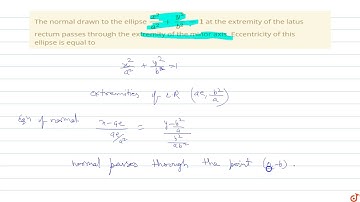 The normal drawn to the ellipse x²/a² + y²/b² = 1 at the extremity of the latus
rectum passes through the extremity of the minor axis. Eccentricity of this
ellipse is equal to
x²/a² + y²/b² = 1
extremities of LR (ae, b²/a)
Eqn of normal (x-ae)/(ae/a²) = (y-b²/a)/(b²/ab²)
normal passes through the point (0,-b).